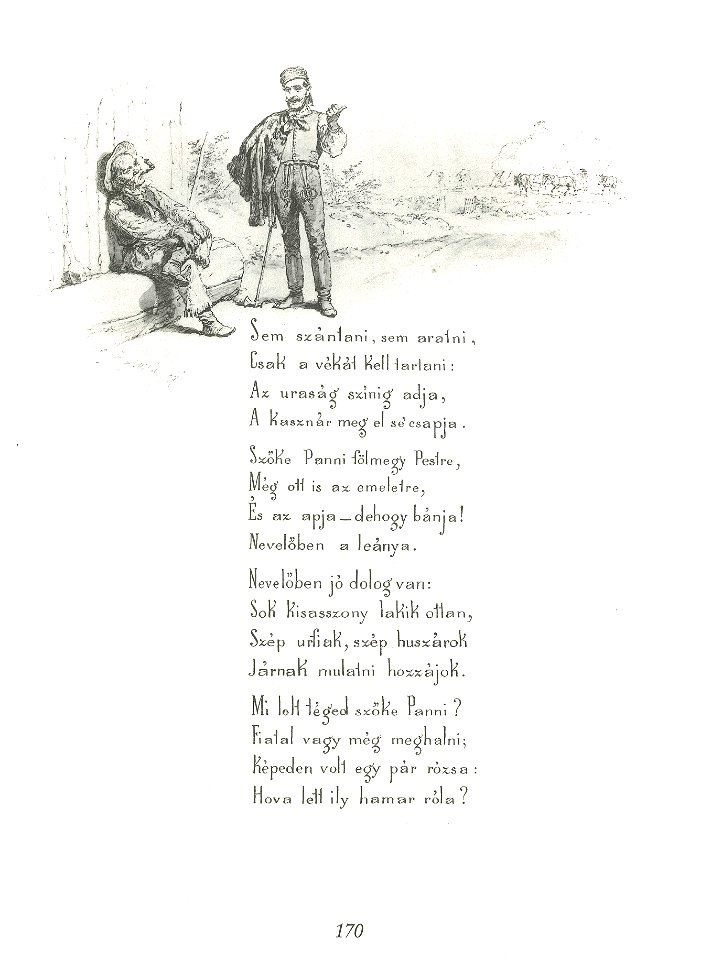 Sem szántani, sem aratni,
Csak a vékát kell tartani:
Az uraság szinig adja,
A kasznár meg el se' csapja.
Szőke Panni fölmegy Pestre,
Még ott is az emeletre,
És az apja—dehogy bánja!
Nevelőben a leánya.
Nevelőben jó dolog van:
Sok kisasszony lakik ottan,
Szép urfiak, szép huszárok
Járnak mulatni hozzájok.
Mi lelt téged szőke Panni?
Fiatal vagy még meghalni;
Képeden volt egy pár rózsa:
Hova lett ily hamar róla?
170